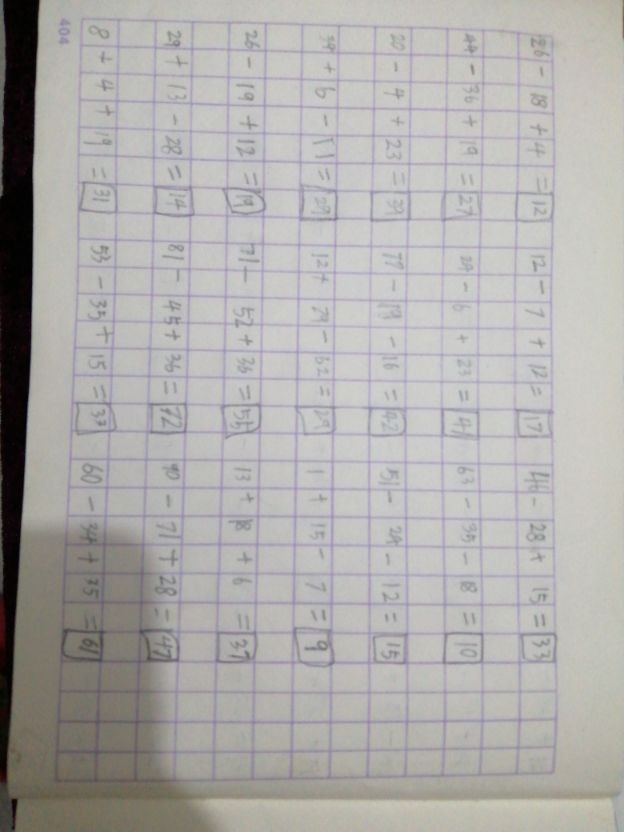 26 - 18 + 4 = 12 12 - 7 + 12 = 17 46 - 28 + 15 = 33
44 - 36 + 19 = 27 24 - 6 + 23 = 41 63 - 35 - 18 = 10
20 - 4 + 23 = 39 77 - 19 - 16 = 42 51 - 24 - 12 = 15
34 + 6 - 11 = 29 12 + 79 - 62 = 29 1 + 15 - 7 = 9
26 - 19 + 12 = 19 71 - 52 + 36 = 55 13 + 18 + 6 = 37
29 + 13 - 28 = 14 81 - 45 + 36 = 72 90 - 71 + 28 = 47
8 + 4 + 19 = 31 53 - 35 + 15 = 33 60 - 34 + 35 = 61
404